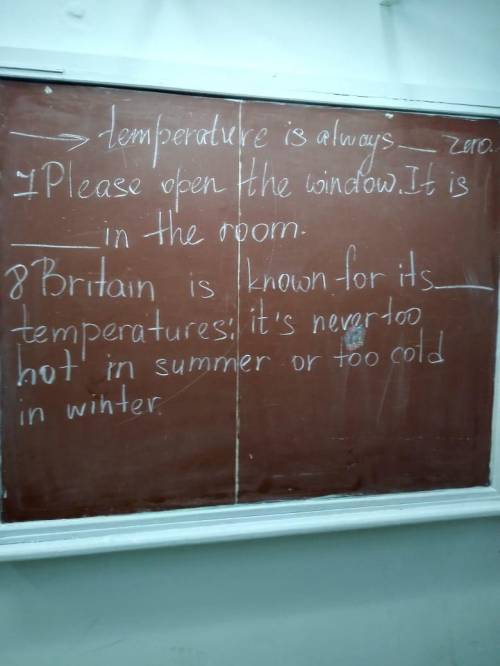 → temperature is always ___ zero.
7 Please open the window. It is
_____ in the room.
8 Britain is known for its ___
temperatures: it's never too
hot in summer or too cold
in winter.